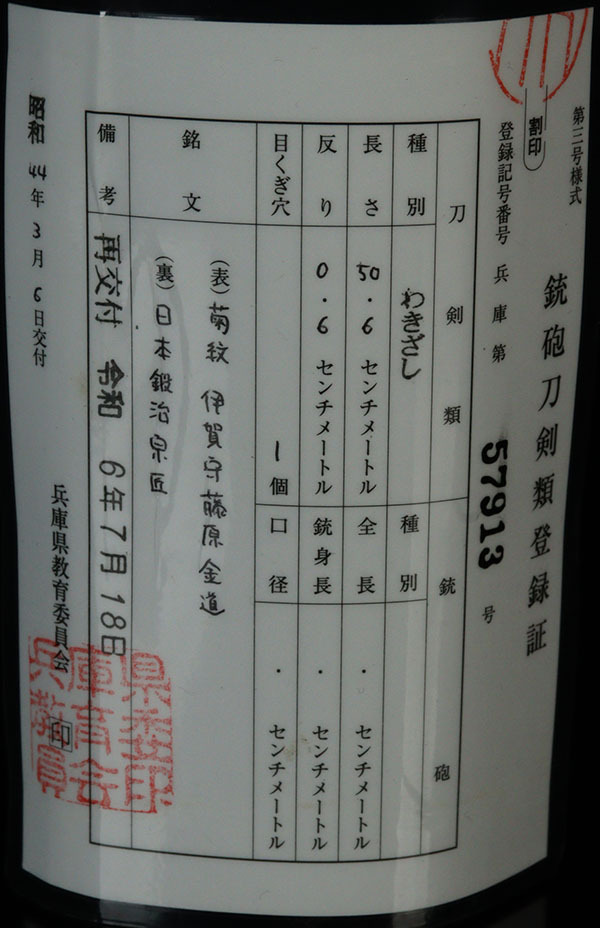 第三号様式
割印
銃砲刀剣類登録証
登録記号番号 兵庫第 57913 号
刀剣類 銃砲
種別 わきざし 種別
長さ 50.6 センチメートル 全長 ・ センチメートル
反り 0.6 センチメートル 銃身長 ・ センチメートル
目くぎ穴 1個 口径 ・ センチメートル
銘文
(表)菊紋 伊賀守藤原金道
(裏)日本鍛治宗匠
備考 再交付 令和 6年7月18日
昭和44年3月6日交付
兵庫県教育委員会 印
兵庫県教育委員会印